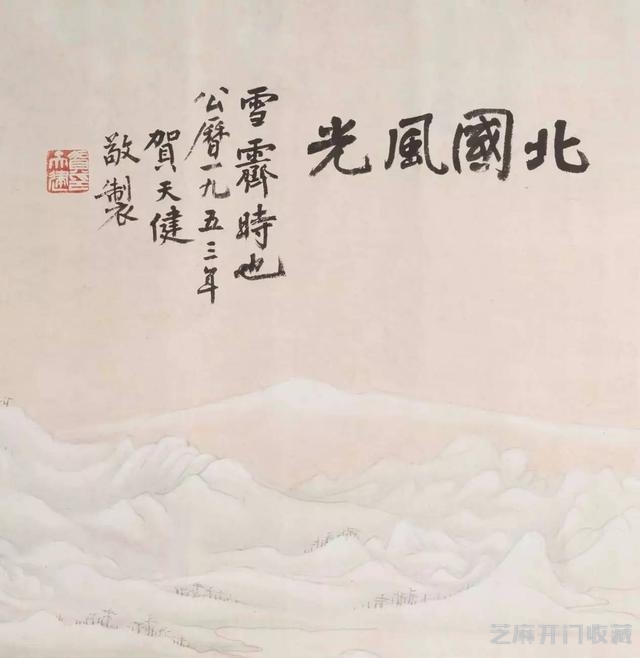 北國風光
雪霽時也
公曆一九五三年
賀天健
敬製
芝麻开门收藏